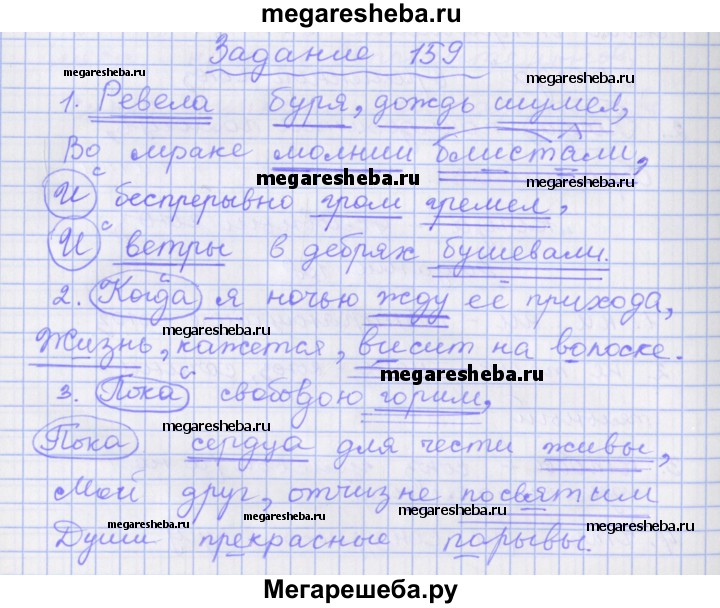 megaresheba.ru
Задание 159
megaresheba.ru
megaresheba.ru
1. Ревела буря, дождь шумел,
Во мраке молнии блистали,
megaresheba.ru
И с беспрерывно гром гремел,
И с ветры в дебрях бушевали.
2. Когда с я ночью жду её прихода,
megaresheba.ru
megaresheba.ru
Жизнь, кажется, висит на волоске.
megaresheba.ru
3. Пока с свободою горим,
megaresheba.ru
Пока сердца для чести живы,
Мой друг, отчизне посвятим
megaresheba.ru
megaresheba.ru
megaresheba.ru
Души прекрасные порывы.
Мегарешеба.ру